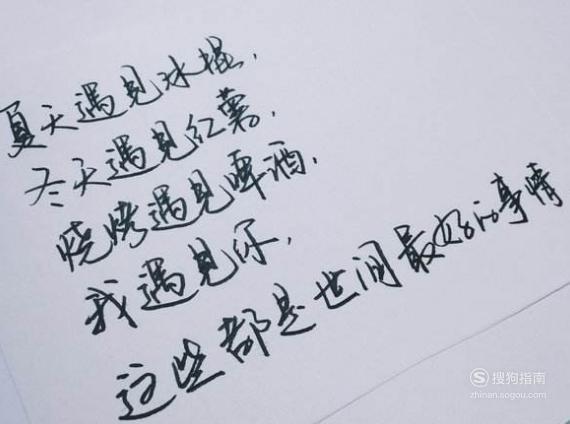 夏天遇见冰棍，
冬天遇见红薯，
烧烤遇见啤酒，
我遇见你，
这些都是世间最好的事情
搜狗指南
zhinan.sogou.com